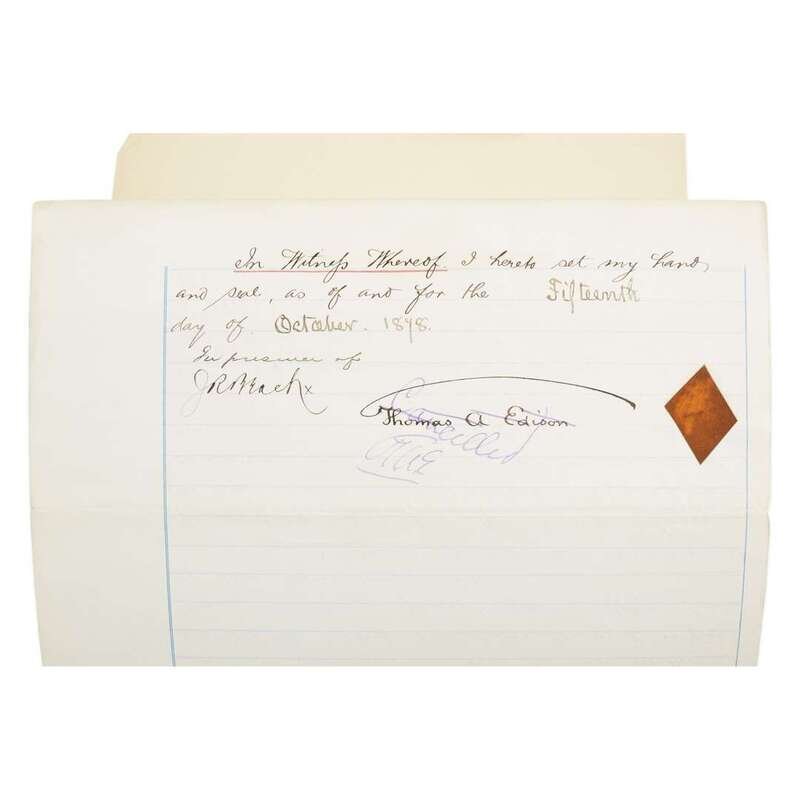 In Witness Whereof I hereto set my hand
and seal, as of and for the Fifteenth
day of October. 1898.
In presence of
J R Brack x
Thomas A Edison
Cancelled
TAE